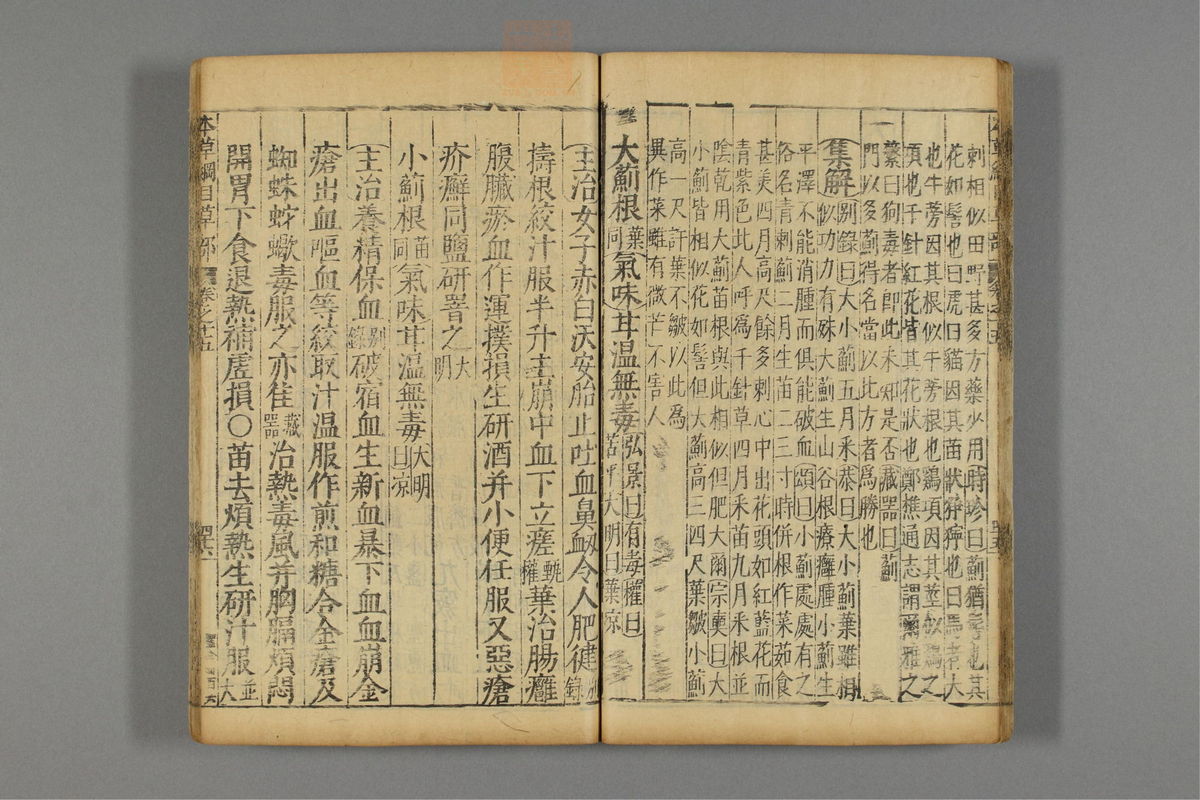 刺相似田野甚多方藥少用時珍曰薊猶髻也其
花如髻也曰虎曰貓因其苗狀猙獰也曰馬者大
也牛蒡因其根似牛蒡根也鷄項因其莖似鷄之
項也千針紅花皆其花狀也鄭樵通志謂爾雅之
蘩曰狗毒者即此未知是否藏器曰薊
門以多薊得名當以此方者爲勝也
集解别錄曰大小薊五月采恭曰大小薊葉雖相
似功力有殊大薊生山谷根療癰腫小薊生
平澤不能消腫而俱能破血頌曰小薊處處有之
俗名青刺薊二月生苗二三寸時併根作菜茹食
甚美四月高尺餘多刺心中出花頭如紅藍花而
青紫色北人呼爲千針草四月采苗九月采根並
陰乾用大薊苗根與此相似但肥大爾宗奭曰大
小薊皆相似花如髻但大薊高三四尺葉皺小薊
高一尺許葉不皺以此爲
異作菜雖有微芒不害人
大薊根葉同氣味甘温無毒弘景曰有毒權曰
苦平大明曰葉涼
主治女子赤白沃安胎止吐血鼻衂令人肥健别錄
擣根絞汁服半升主崩中血下立瘥甄權葉治腸癰
腹臟瘀血作運撲損生研酒并小便任服又惡瘡
疥癬同鹽研罯之大明
小薊根苗同氣味甘温無毒大明曰凉
主治養精保血别錄破宿血生新血暴下血血崩金
瘡出血嘔血等絞取汁温服作煎和糖合金瘡及
蜘蛛蛇蠍毒服之亦佳藏器治熱毒風并胸膈煩悶
開胃下食退熱補虛損○苗去煩熱生研汁服並大
本草綱目草部 卷之十五